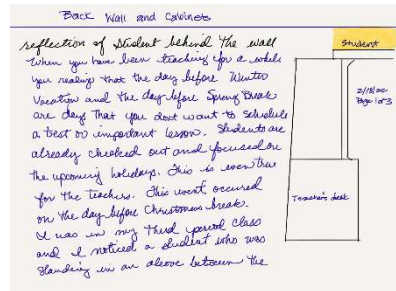 Back Wall and Cabinets
reflection of student behind the wall
When you have been teaching for a while
you realize that the day before Winter
Vacation and the day before Spring Break
are day that you dont want to schedule
a test or important lesson. Students are
already checked out and focused on
the upcoming holidays. This is even true
for the teachers. This event occured
on the day before Christmas break.
I was in my Third period class
and I noticed a student who was
standing in an alcove between the
Student
Page 1 of 3
Teacher's desk